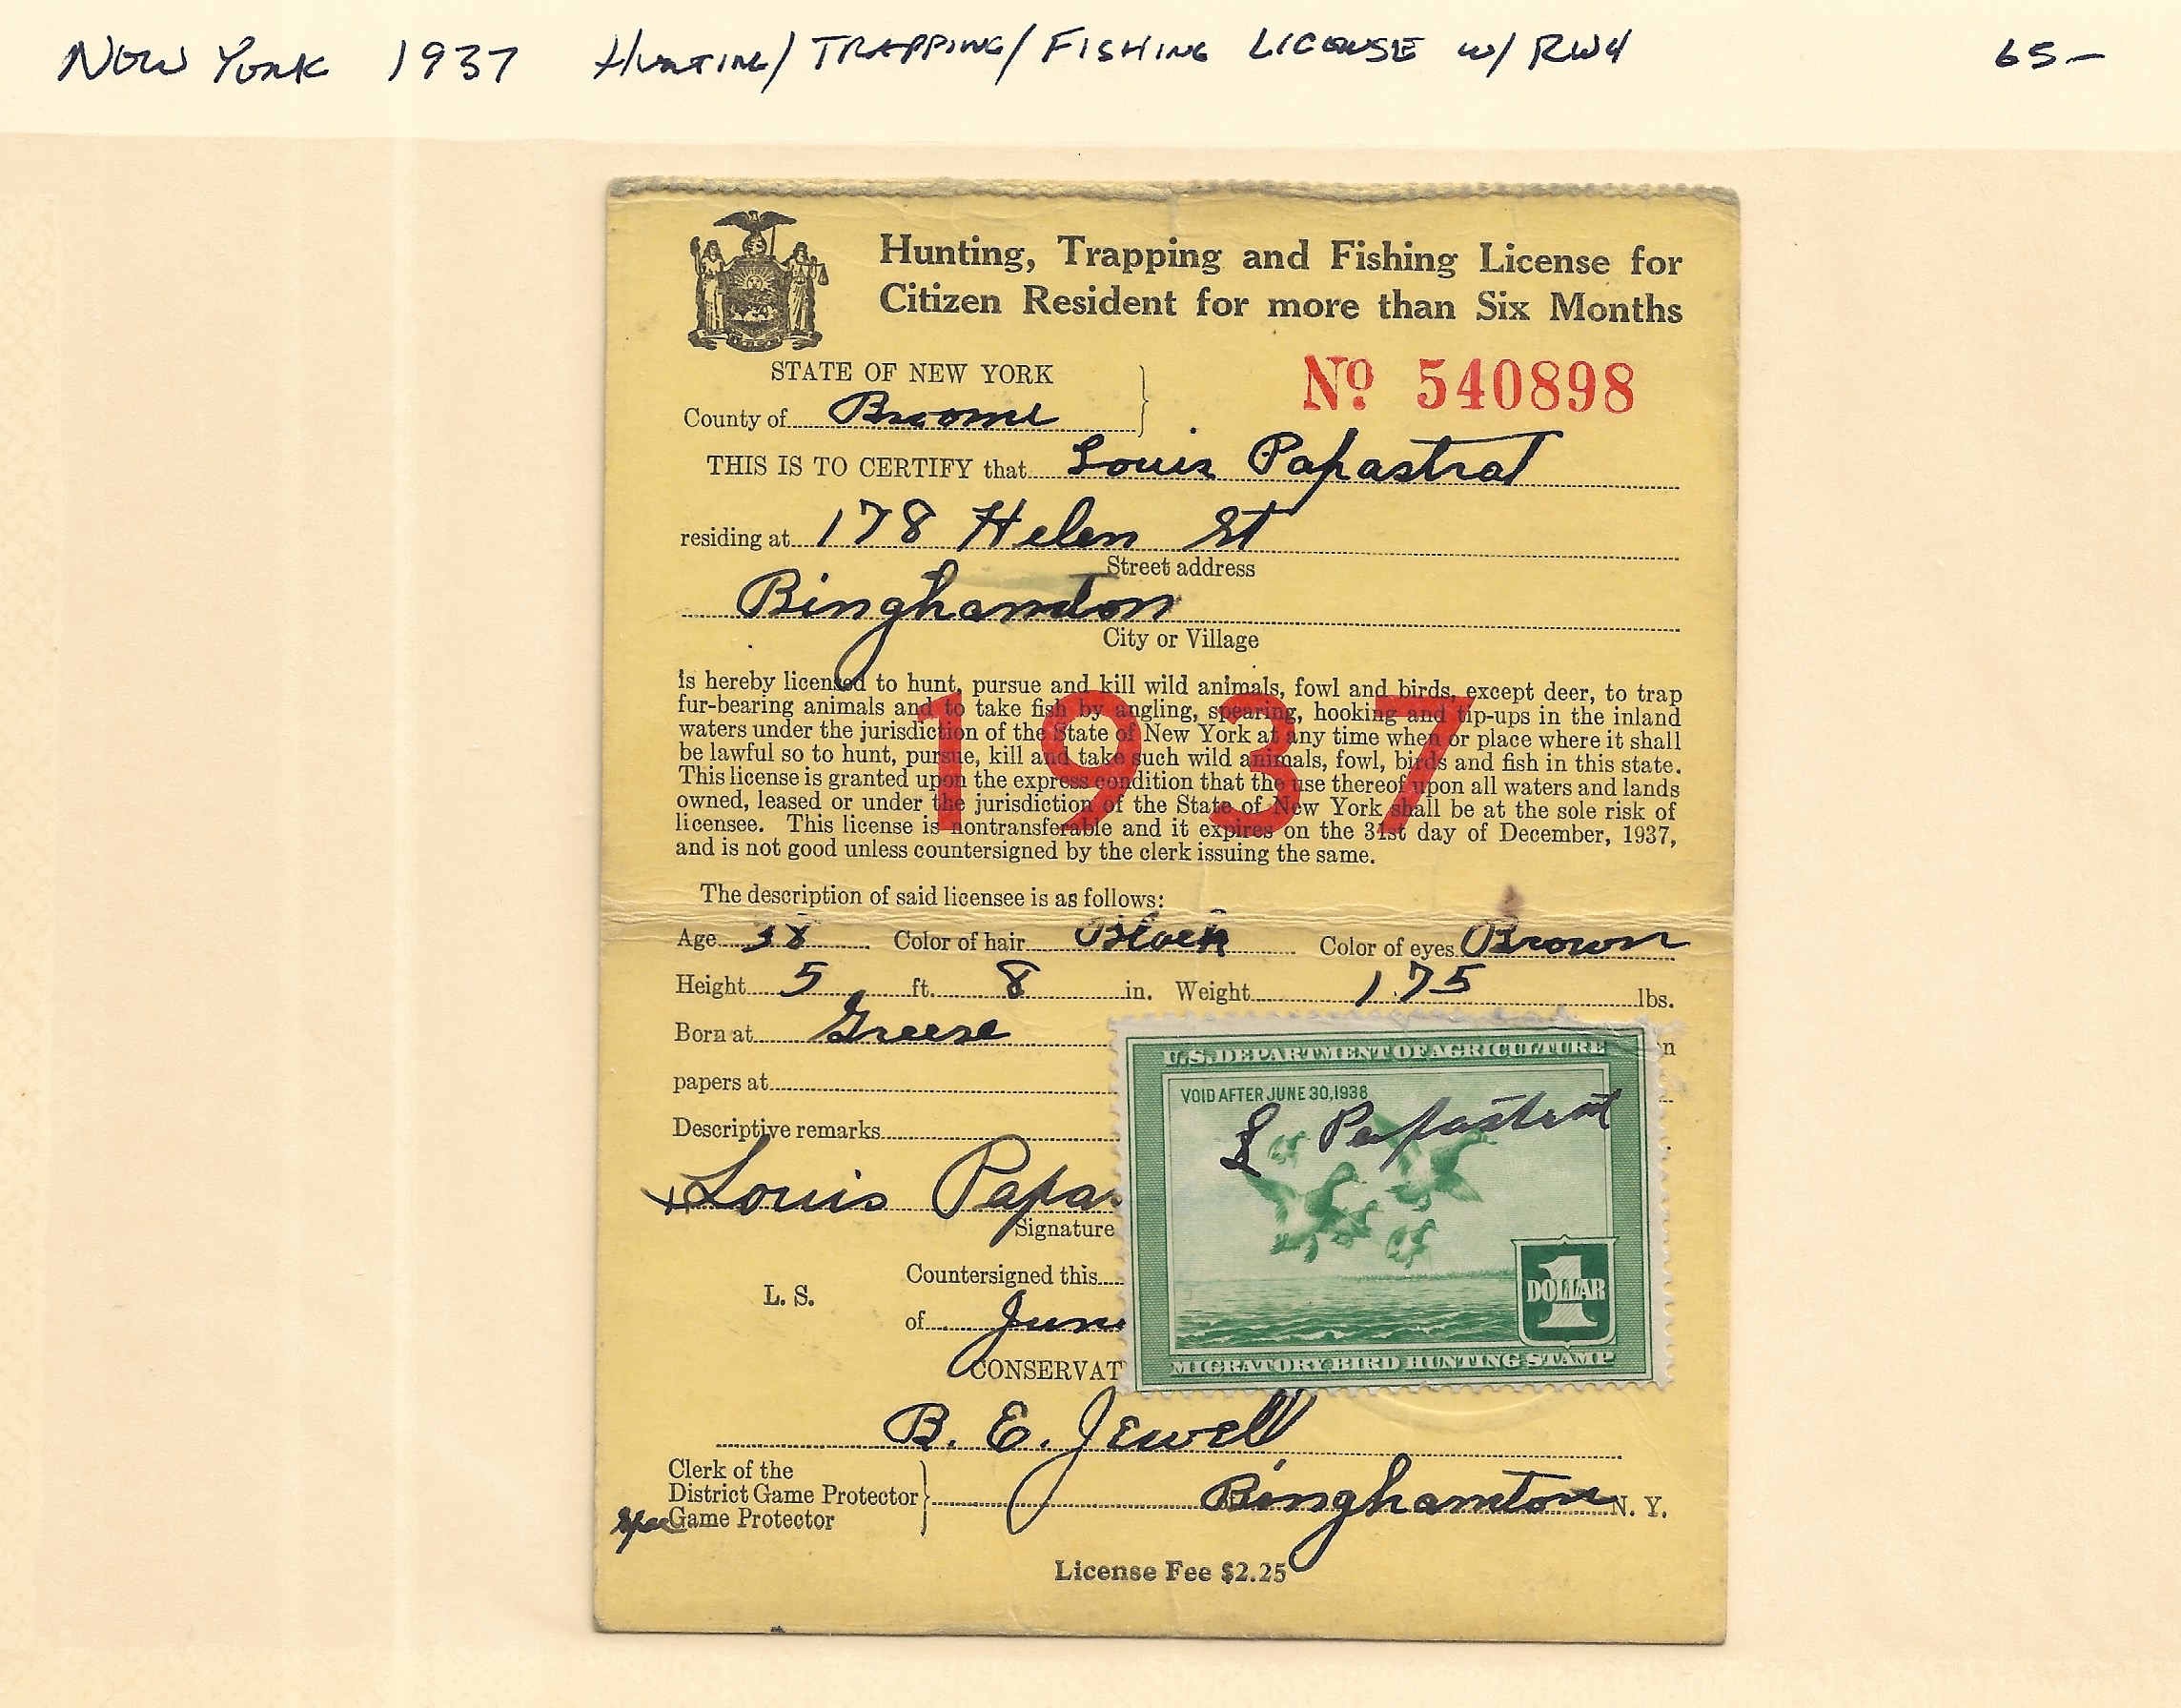 NEW YORK 1937 HUNTING/TRAPPING/FISHING LICENSE w/ RW4 65-
Hunting, Trapping and Fishing License for
Citizen Resident for more than Six Months
STATE OF NEW YORK
No. 540898
County of Broome
THIS IS TO CERTIFY that Louis Papastrat
residing at 178 Helen St
Street address
Binghamton
City or Village
is hereby licensed to hunt, pursue and kill wild animals, fowl and birds, except deer, to trap
fur-bearing animals and to take fish by angling, spearing, hooking and tip-ups in the inland
waters under the jurisdiction of the State of New York at any time when or place where it shall
be lawful so to hunt, pursue, kill and take such wild animals, fowl, birds and fish in this state.
This license is granted upon the express condition that the use thereof upon all waters and lands
owned, leased or under the jurisdiction of the State of New York shall be at the sole risk of
licensee. This license is nontransferable and it expires on the 31st day of December, 1937,
and is not good unless countersigned by the clerk issuing the same.
1937
The description of said licensee is as follows:
Age 38 Color of hair Black Color of eyes Brown
Height 5 ft. 8 in. Weight 175 lbs.
Born at Greese
papers at
Descriptive remarks
Louis Papas
Signature
Countersigned this
L. S.
of June
CONSERVAT
U.S. DEPARTMENT OF AGRICULTURE
VOID AFTER JUNE 30, 1938
L Papastrat
1 DOLLAR
MIGRATORY BIRD HUNTING STAMP
B. E. Jewell
Clerk of the
District Game Protector
Game Protector
Binghamton N. Y.
License Fee $2.25